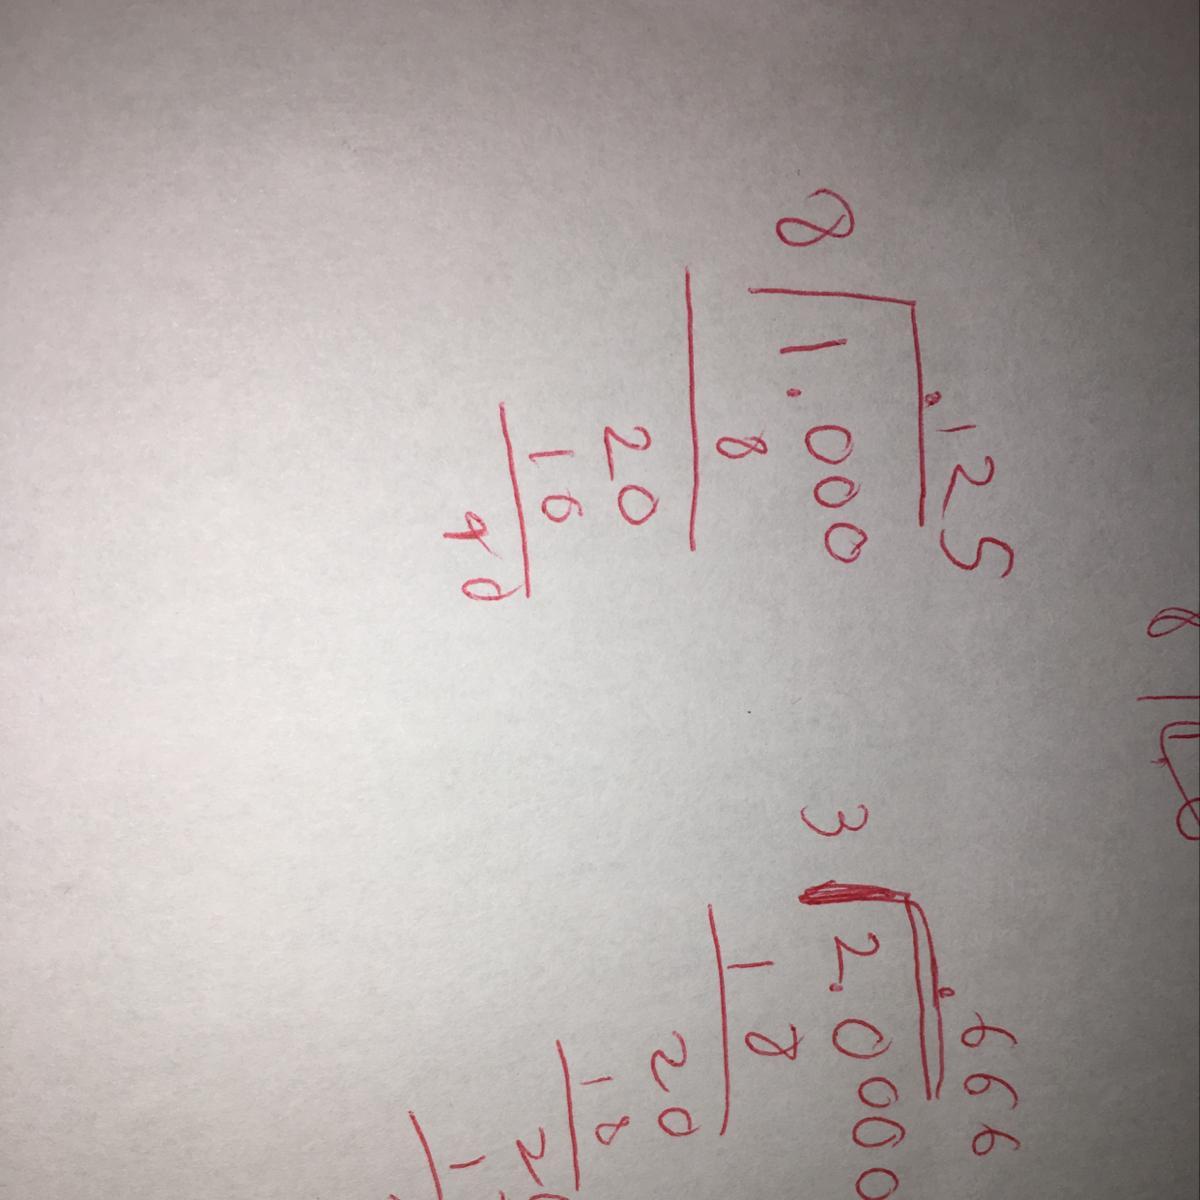 .125
8 1.000
8
20
16
40
.666
3 2.0000
18
20
18
2
1
8